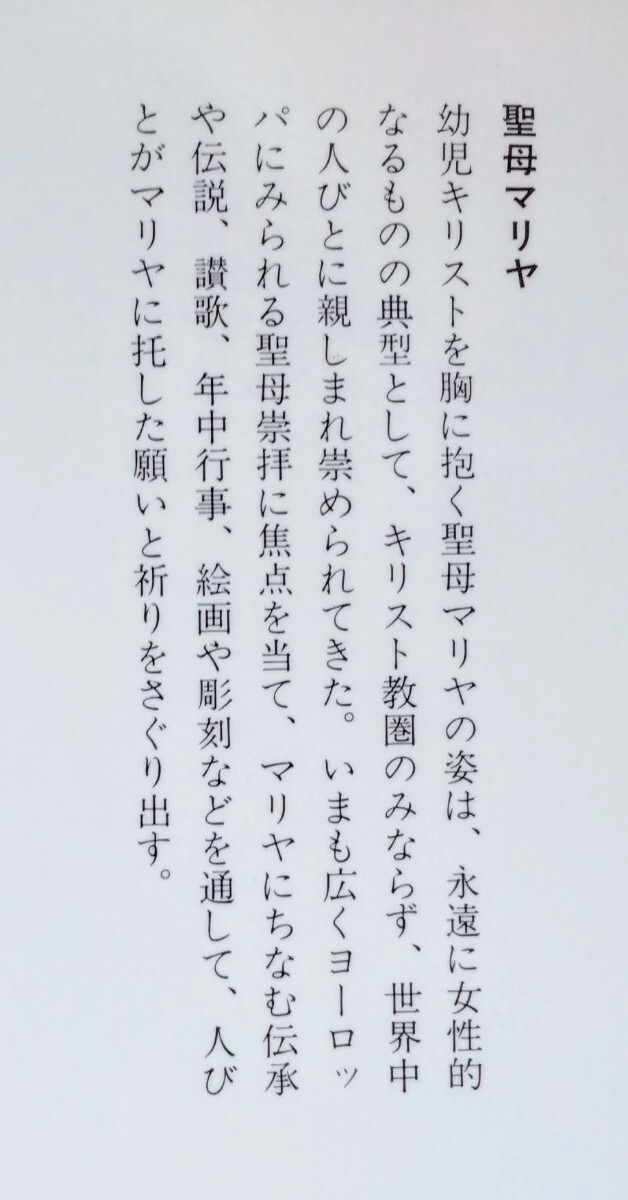 聖母マリヤ
幼児キリストを胸に抱く聖母マリヤの姿は、永遠に女性的
なるものの典型として、キリスト教圏のみならず、世界中
の人びとに親しまれ崇められてきた。いまも広くヨーロッ
パにみられる聖母崇拝に焦点を当て、マリヤにちなむ伝承
や伝説、讃歌、年中行事、絵画や彫刻などを通して、人び
とがマリヤに托した願いと祈りをさぐり出す。